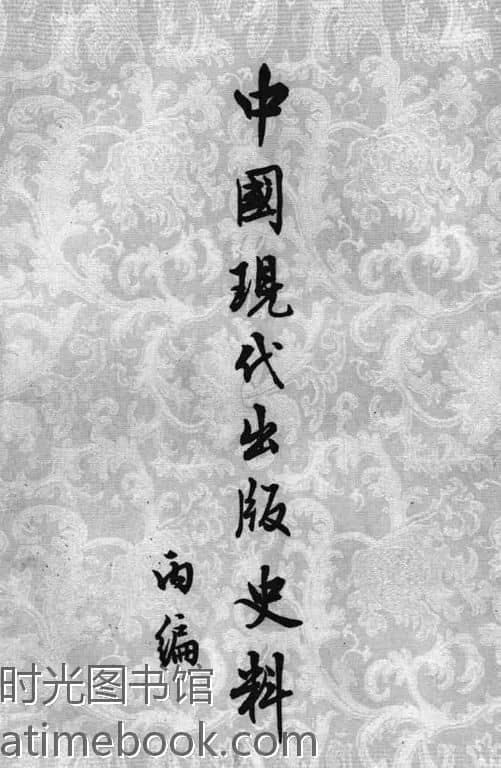 中國現代出版史料
丙編
时光图书馆
atimebook.com